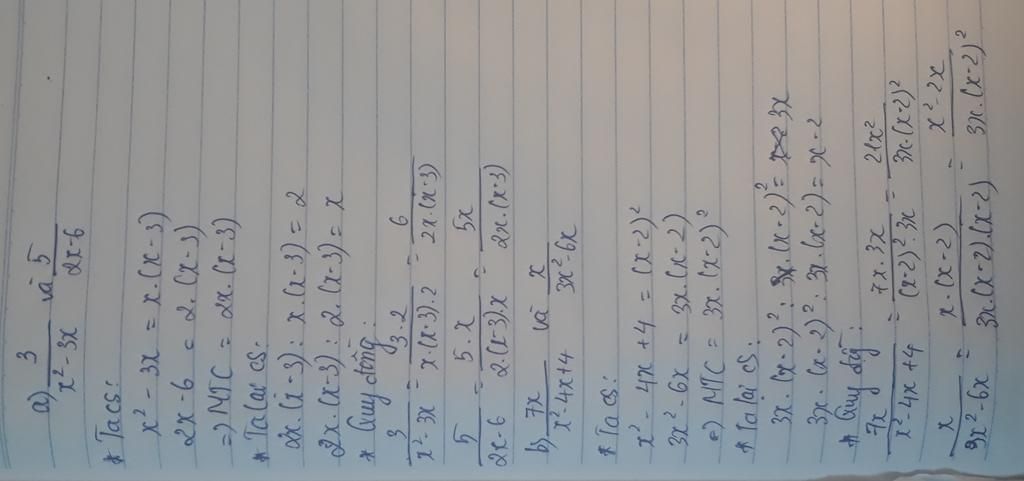 a) 3/(x² - 3x) và 5/(2x - 6)
* Ta có:
x² - 3x = x.(x - 3)
2x - 6 = 2.(x - 3)
=) MTC = 2x.(x - 3)
* Ta lại có:
2x.(x - 3) : x.(x - 3) = 2
2x.(x - 3) : 2.(x - 3) = x
* Quy đồng:
3/(x² - 3x) = 3.2/(x.(x - 3).2) = 6/(2x.(x - 3))
5/(2x - 6) = 5.x/(2.(x - 3).x) = 5x/(2x.(x - 3))
b) 7x/(x² - 4x + 4) và x/(3x² - 6x)
* Ta có:
x² - 4x + 4 = (x - 2)²
3x² - 6x = 3x.(x - 2)
=) MTC = 3x.(x - 2)²
* Ta lại có:
3x.(x - 2)² : (x - 2)² = 3x
3x.(x - 2)² : 3x.(x - 2) = x - 2
* Quy đồng:
7x/(x² - 4x + 4) = 7x.3x/((x - 2)².3x) = 21x²/(3x.(x - 2)²)
x/(3x² - 6x) = x.(x - 2)/(3x.(x - 2)(x - 2)) = x² - 2x/(3x.(x - 2)²)